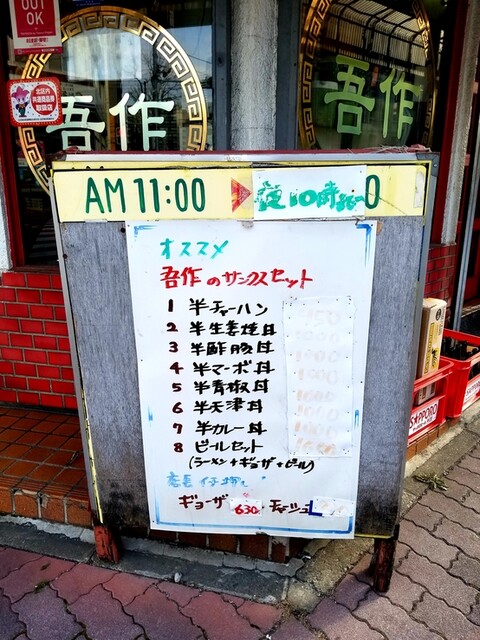 OUT
OK
北区内
共通商品券
取扱店
吾作
吾作
AM 11:00 夜10時まで0
オススメ
吾作のサンクスセット
1 半チャーハン
2 半生姜焼丼
3 半酢豚丼
4 半マーボ丼
5 半青椒丼
6 半天津丼
7 半カレー丼
8 ビールセット
(ラーメン+ギョーザ+ビール)
店長
ギョーザ 630 チャーシュ
SAPPORO